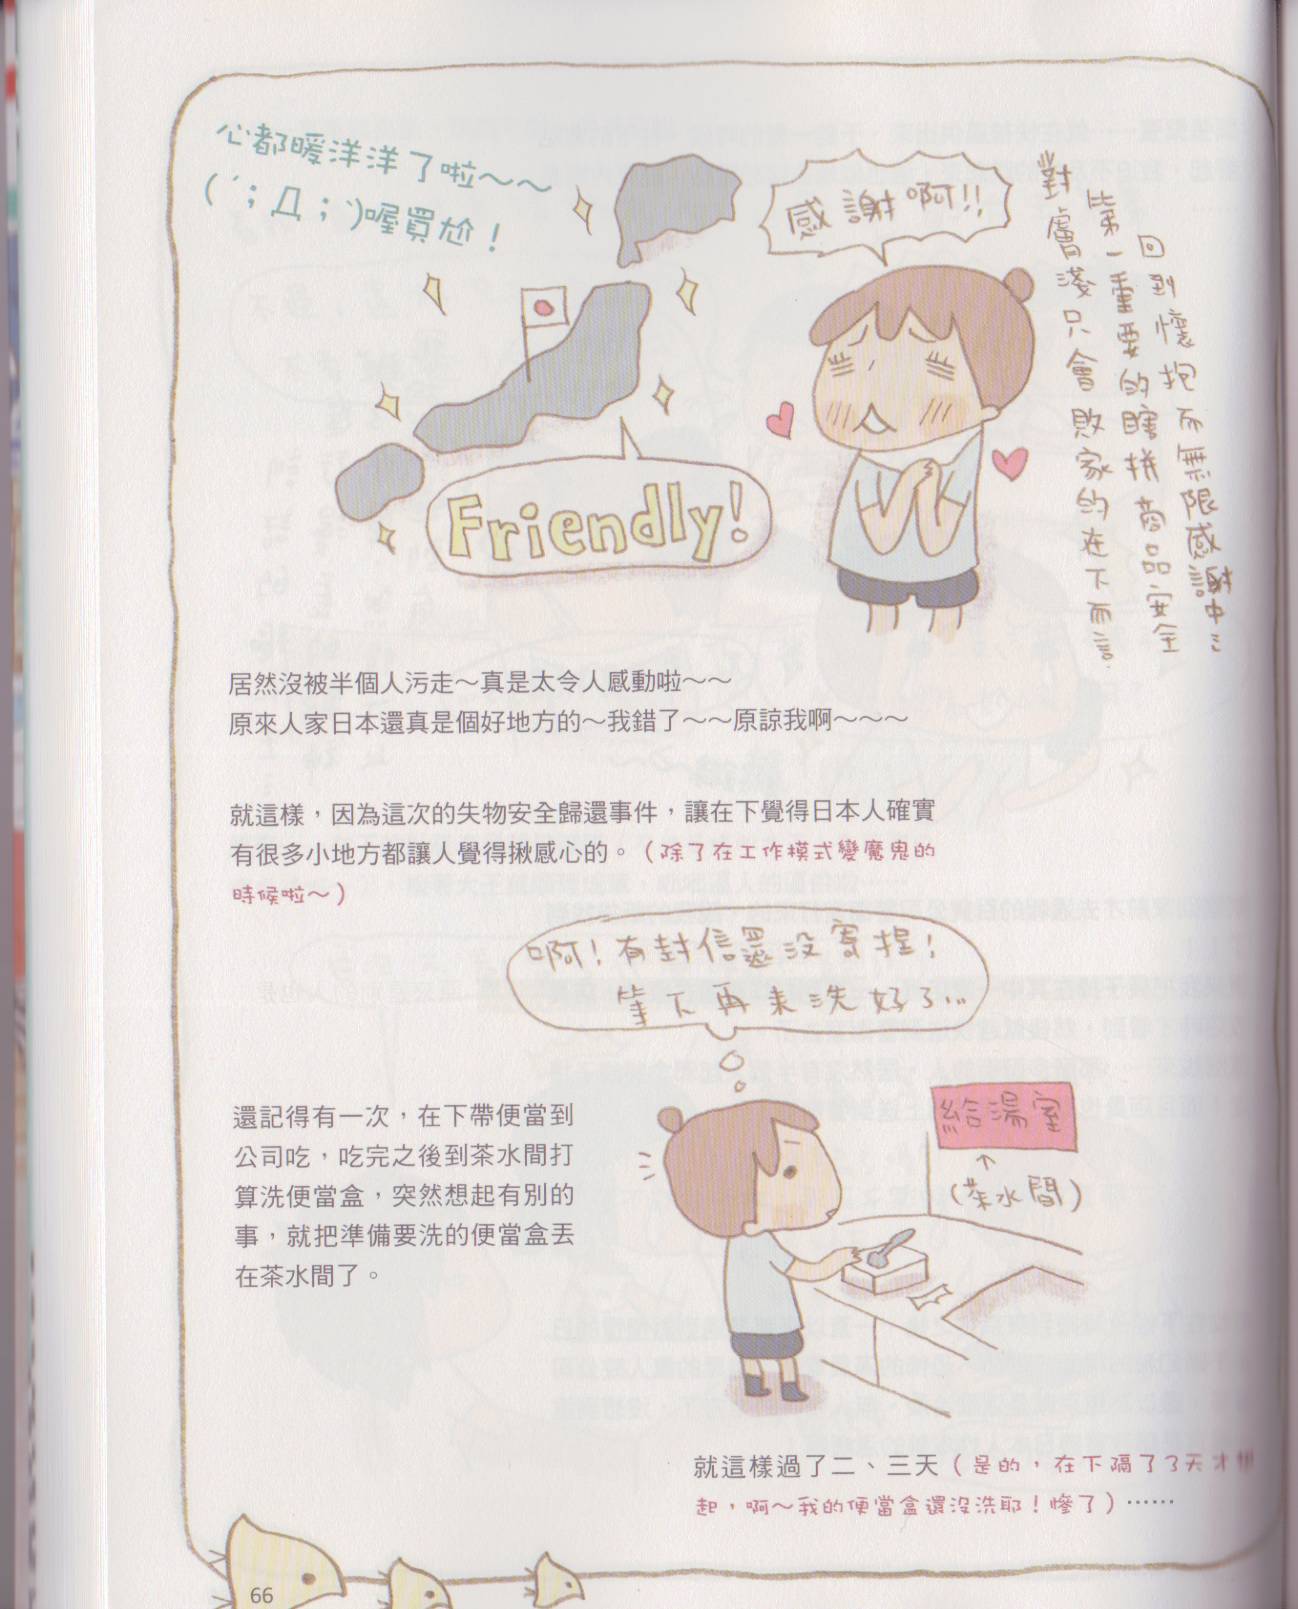 心都暖洋洋了啦～～
(´；Д；`)喔買尬！
感謝啊!!
對膚淺只會敗家的在下而言
第一重要的瞎拼商品安全
回到懷抱而無限感謝中ミ
Friendly!
居然沒被半個人污走～真是太令人感動啦～～
原來人家日本還真是個好地方的～我錯了～～原諒我啊～～～
就這樣，因為這次的失物安全歸還事件，讓在下覺得日本人確實
有很多小地方都讓人覺得揪感心的。（除了在工作模式變魔鬼的
時候啦～）
啊！有封信還沒寄捏！
等下再來洗好了...
還記得有一次，在下帶便當到
公司吃，吃完之後到茶水間打
算洗便當盒，突然想起有別的
事，就把準備要洗的便當盒丟
在茶水間了。
給湯室
(茶水間)
就這樣過了二、三天（是的，在下隔了3天才想
起，啊～我的便當盒還沒洗耶！慘了）……
66